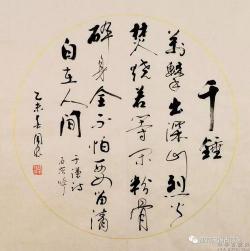 千錘
萬擊出深山烈火
焚燒若等閑粉骨
碎身全不怕要留清
白在人間
于謙詩
石灰吟
乙未春